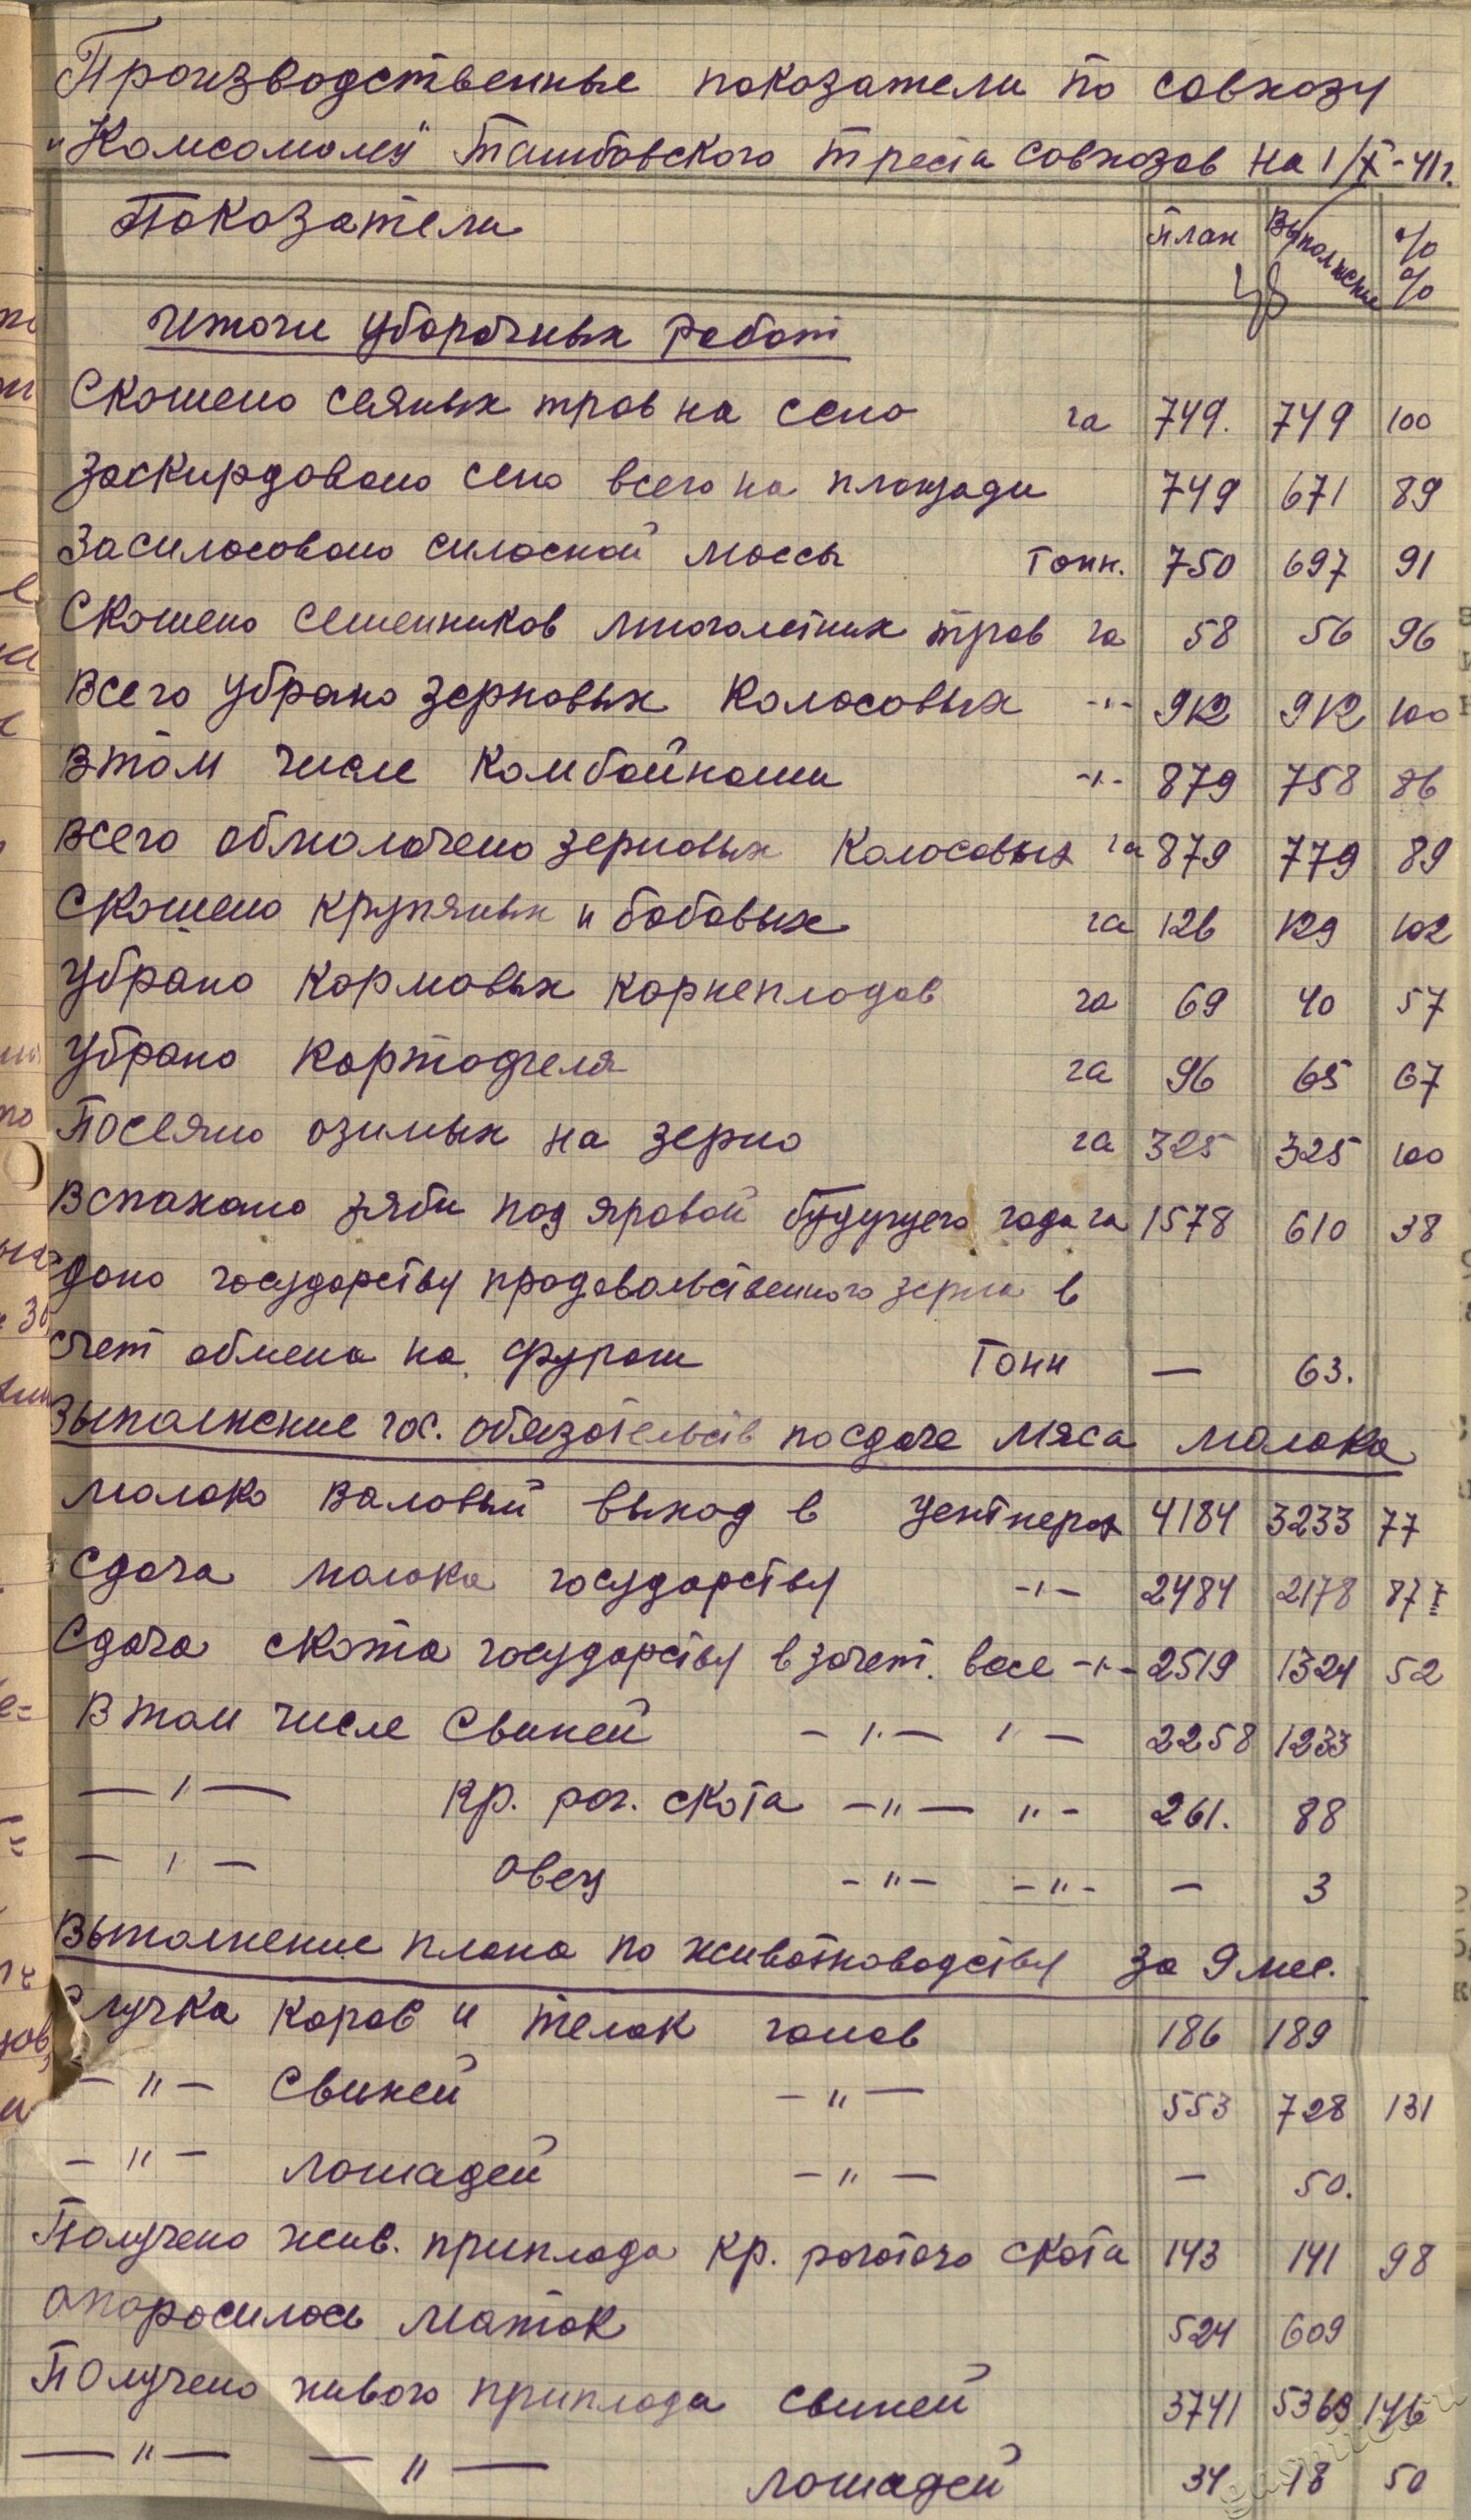 Производственные показатели по совхозу
"Комсомолец" Тамбовского треста совхозов на 1/X-41г.
Показатели План Выполнение % %
Итоги уборочных работ
Скошено сеяных трав на сено га 749. 749 100
Заскирдовано сена всего на площади 749 671 89
Засилосовано силосной массы тонн. 750 697 91
Скошено семенников многолетних трав га 58 56 96
Всего убрано зерновых колосовых -"- 912 912 100
В том числе комбайнами -"- 879 758 86
Всего обмолочено зерновых колосовых га 879 779 89
Скошено крупяных и бобовых га 126 129 102
Убрано кормовых корнеплодов га 69 40 57
Убрано картофеля га 96 65 67
Посеяно озимых на зерно га 325 325 100
Вспахано зяби под яровой будущего года га 1578 610 38
дано государству продовольственного зерна в
счет обмена на фураж Тонн — 63.
Выполнение гос. обязательств по сдаче мяса молока
Молоко валовый выход в центнерах 4184 3233 77
Сдача молока государству -"- 2484 2178 87
Сдача скота государству в зачет. весе -"- 2519 1324 52
В том числе свиней -"- "- 2258 1233
-"- кр. рог. скота -"- "- 261. 88
-"- овец -"- -"- — 3
Выполнение плана по животноводству за 9 мес.
Случка коров и телок голов 186 189
-"- свиней -"- 553 728 131
-"- лошадей -"- — 50.
Получено жив. приплода кр. рогатого скота 143 141 98
Опоросилось маток 524 609
Получено живого приплода свиней 3741 5363 146
-"- -"- лошадей 34 18 50